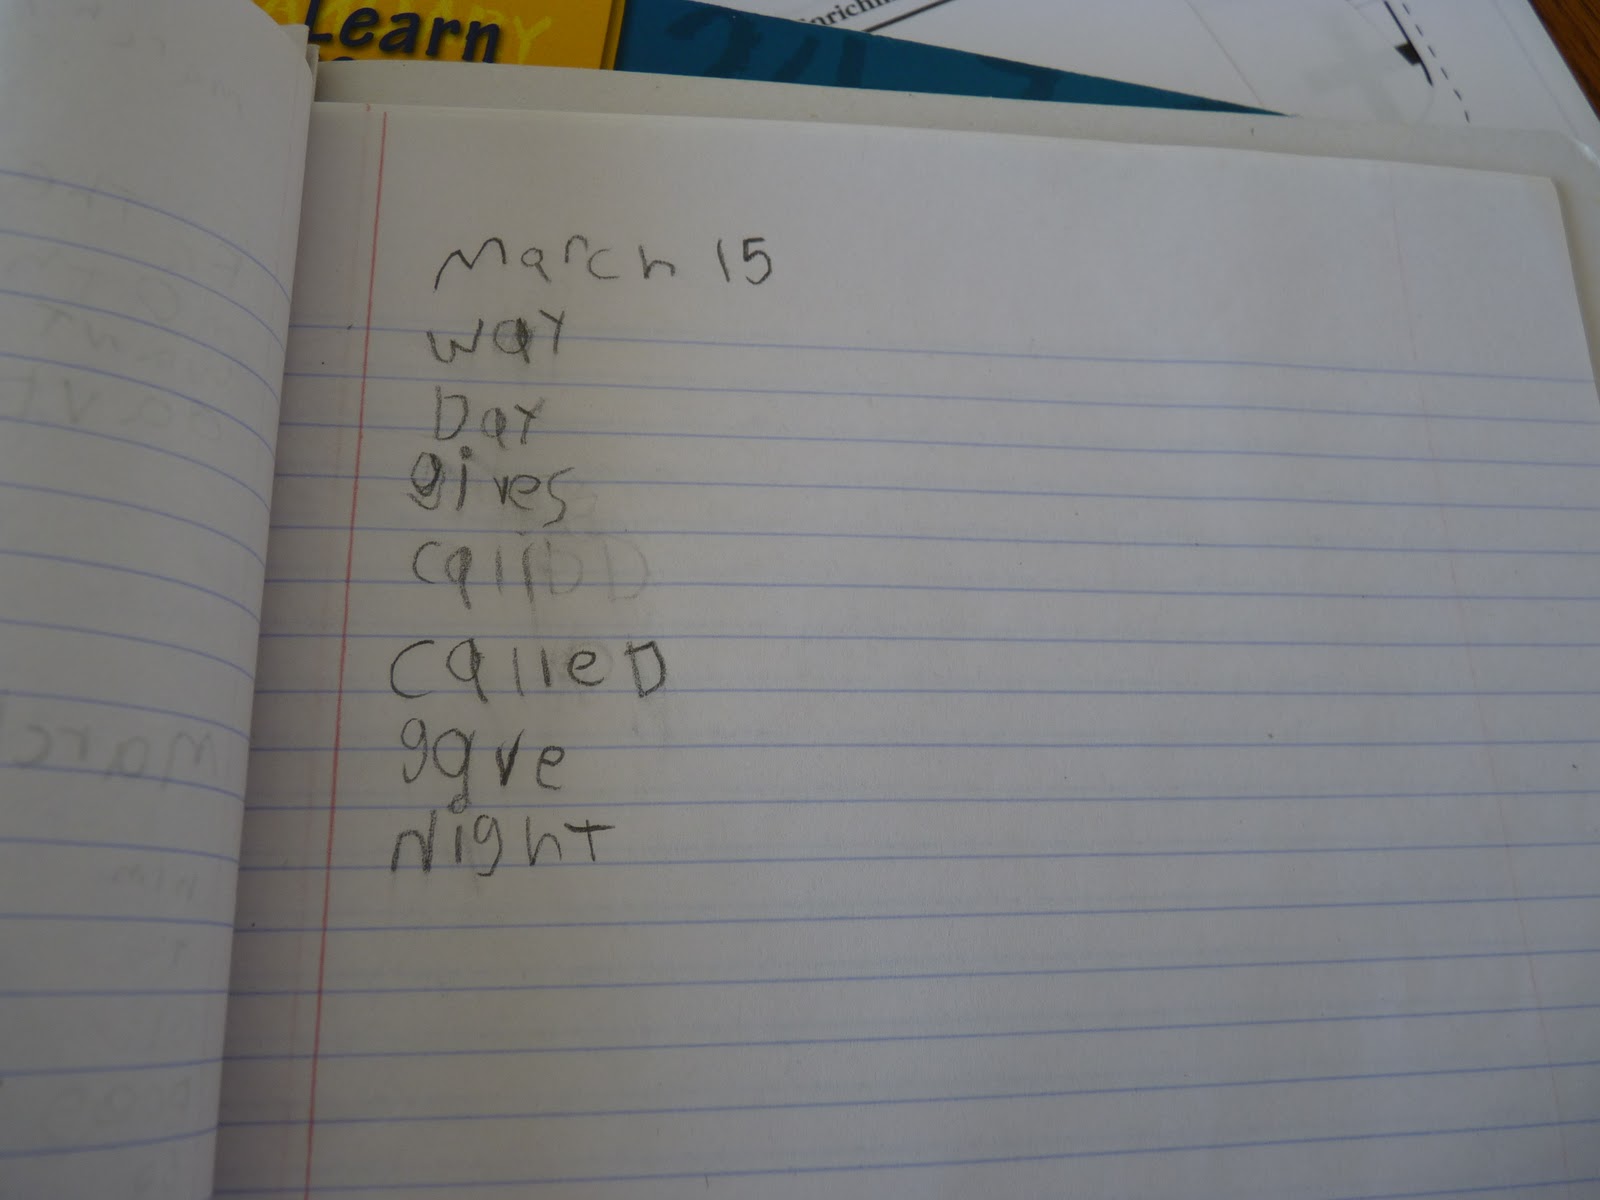 Learn
March 15
way
Day
gives
call
calleD
gave
Night